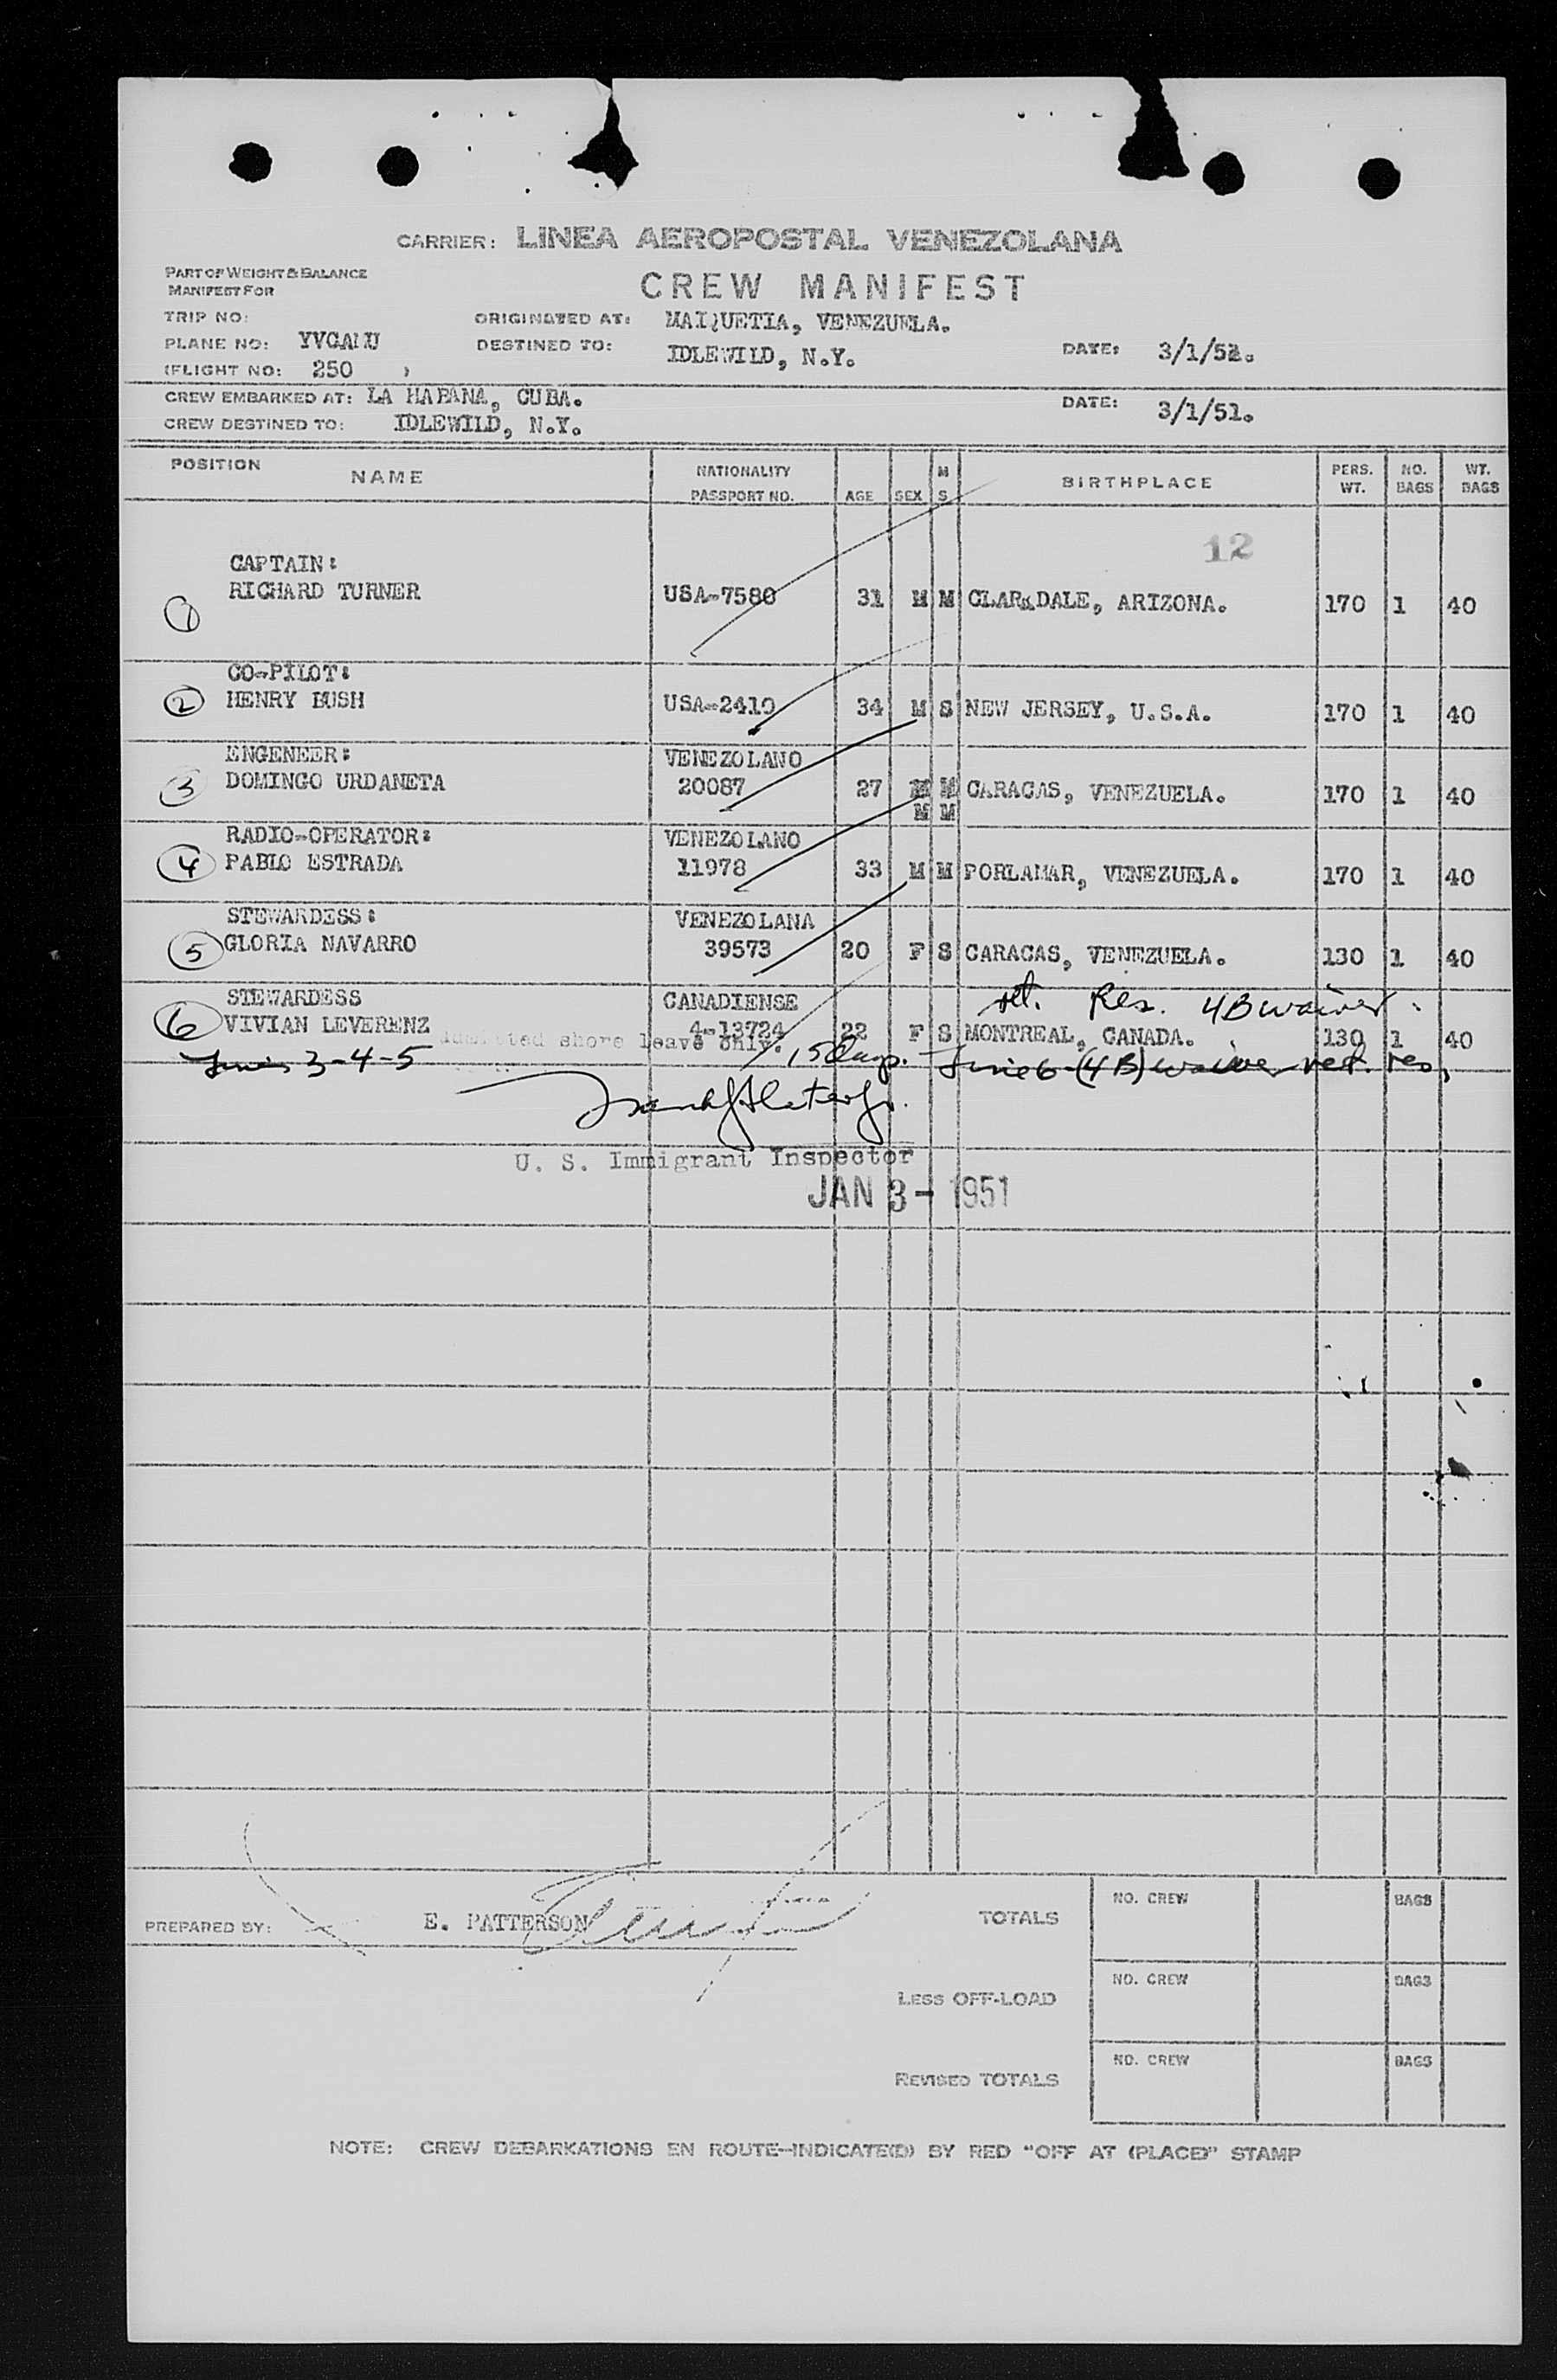 CARRIER: LINEA AEROPOSTAL VENEZOLANA
PART OF WEIGHT & BALANCE
MANIFEST FOR
CREW MANIFEST
TRIP NO:
ORIGINATED AT: MAIQUETIA, VENEZUELA.
PLANE NO:
DESTINED TO: IDLEWILD, N.Y.
DATE: 3/1/52.
(FLIGHT NO: 250 )
CREW EMBARKED AT: LA HABANA, CUBA.
DATE: 3/1/51.
CREW DESTINED TO: IDLEWILD, N.Y.
POSITION NAME NATIONALITY PASSPORT NO. AGE SEX M S BIRTHPLACE PERS. WT. NO. BAGS WT. BAGS
12
CAPTAIN:
1 RICHARD TURNER USA-7580 31 M M CLARKDALE, ARIZONA. 170 1 40
CO-PILOT:
2 HENRY BUSH USA-2410 34 M S NEW JERSEY, U.S.A. 170 1 40
ENGENEER: VENEZOLANO
3 DOMINGO URDANETA 20087 27 M M CARACAS, VENEZUELA. 170 1 40
M M
RADIO-OPERATOR: VENEZOLANO
4 PABLO ESTRADA 11978 33 M M PORLAMAR, VENEZUELA. 170 1 40
STEWARDESS: VENEZOLANA
5 GLORIA NAVARRO 39573 20 F S CARACAS, VENEZUELA. 130 1 40
STEWARDESS CANADIENSE ret. Res. 4B waiver.
6 VIVIAN LEVERENZ 4-13724 22 F S MONTREAL, CANADA. 130 1 40
Admitted shore leave only.
Lines 3-4-5 15 days. Line 6-(4B) waiver ret. res.
U. S. Immigrant Inspector
JAN 3 - 1951
PREPARED BY: E. PATTERSON
TOTALS NO. CREW BAGS
LESS OFF-LOAD NO. CREW BAGS
REVISED TOTALS NO. CREW BAGS
NOTE: CREW DEBARKATIONS EN ROUTE-INDICATE(D) BY RED "OFF AT (PLACE)" STAMP